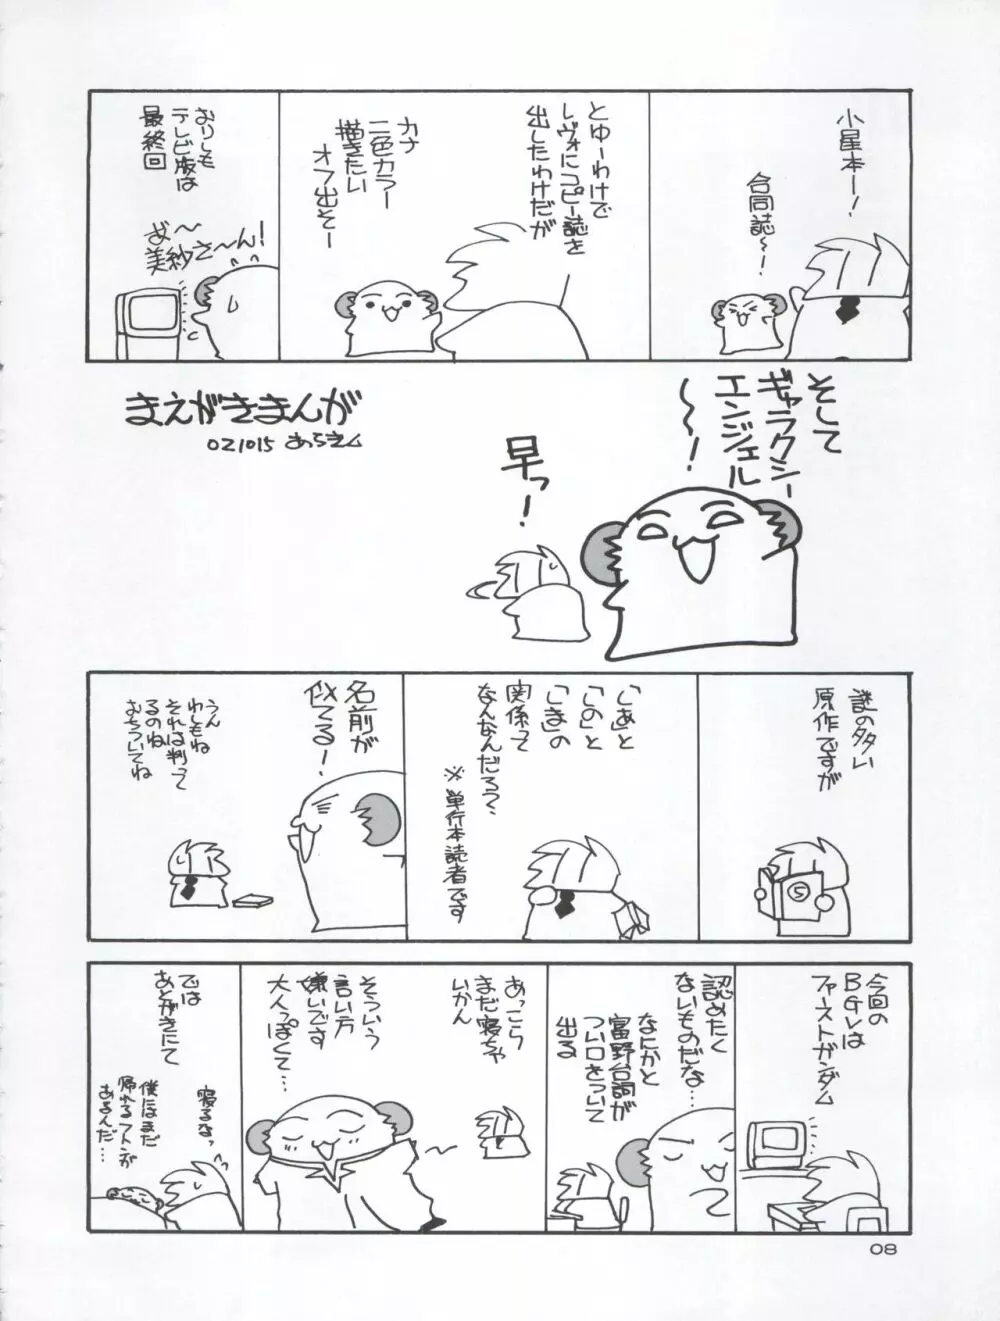 小星本ー！
合同誌〜ー！
とゆーわけで
レヴォにコピー誌を
出したわけだが
カナ
二色カラー
描きたい
オフ出そー
おりしも
テレビ版は
最終回
美紗さ〜ん！
そして
ギャラクシー
エンジェル
〜〜！
早っ！
まえがきまんが
021015 あらえム
謎の多い
原作ですが
5
「あ」と
「の」と
「ま」の
関係って
なんなんだろ？
※単行本読者です
名前が
似てる！
うん
わしもね
それは判って
るのね
おちついてね
今回の
BGVは
ファーストガンダム
認めたく
ないものだな…
なにかと
富野台詞が
つい口をついて
出る
あっこら
まだ寝ちゃ
いかん
そういう
言い方
嫌いです
大人っぽくて…
では
あとがきにて
寝るなっ
僕にはまだ
帰れるフトンが
あるんだ…
08